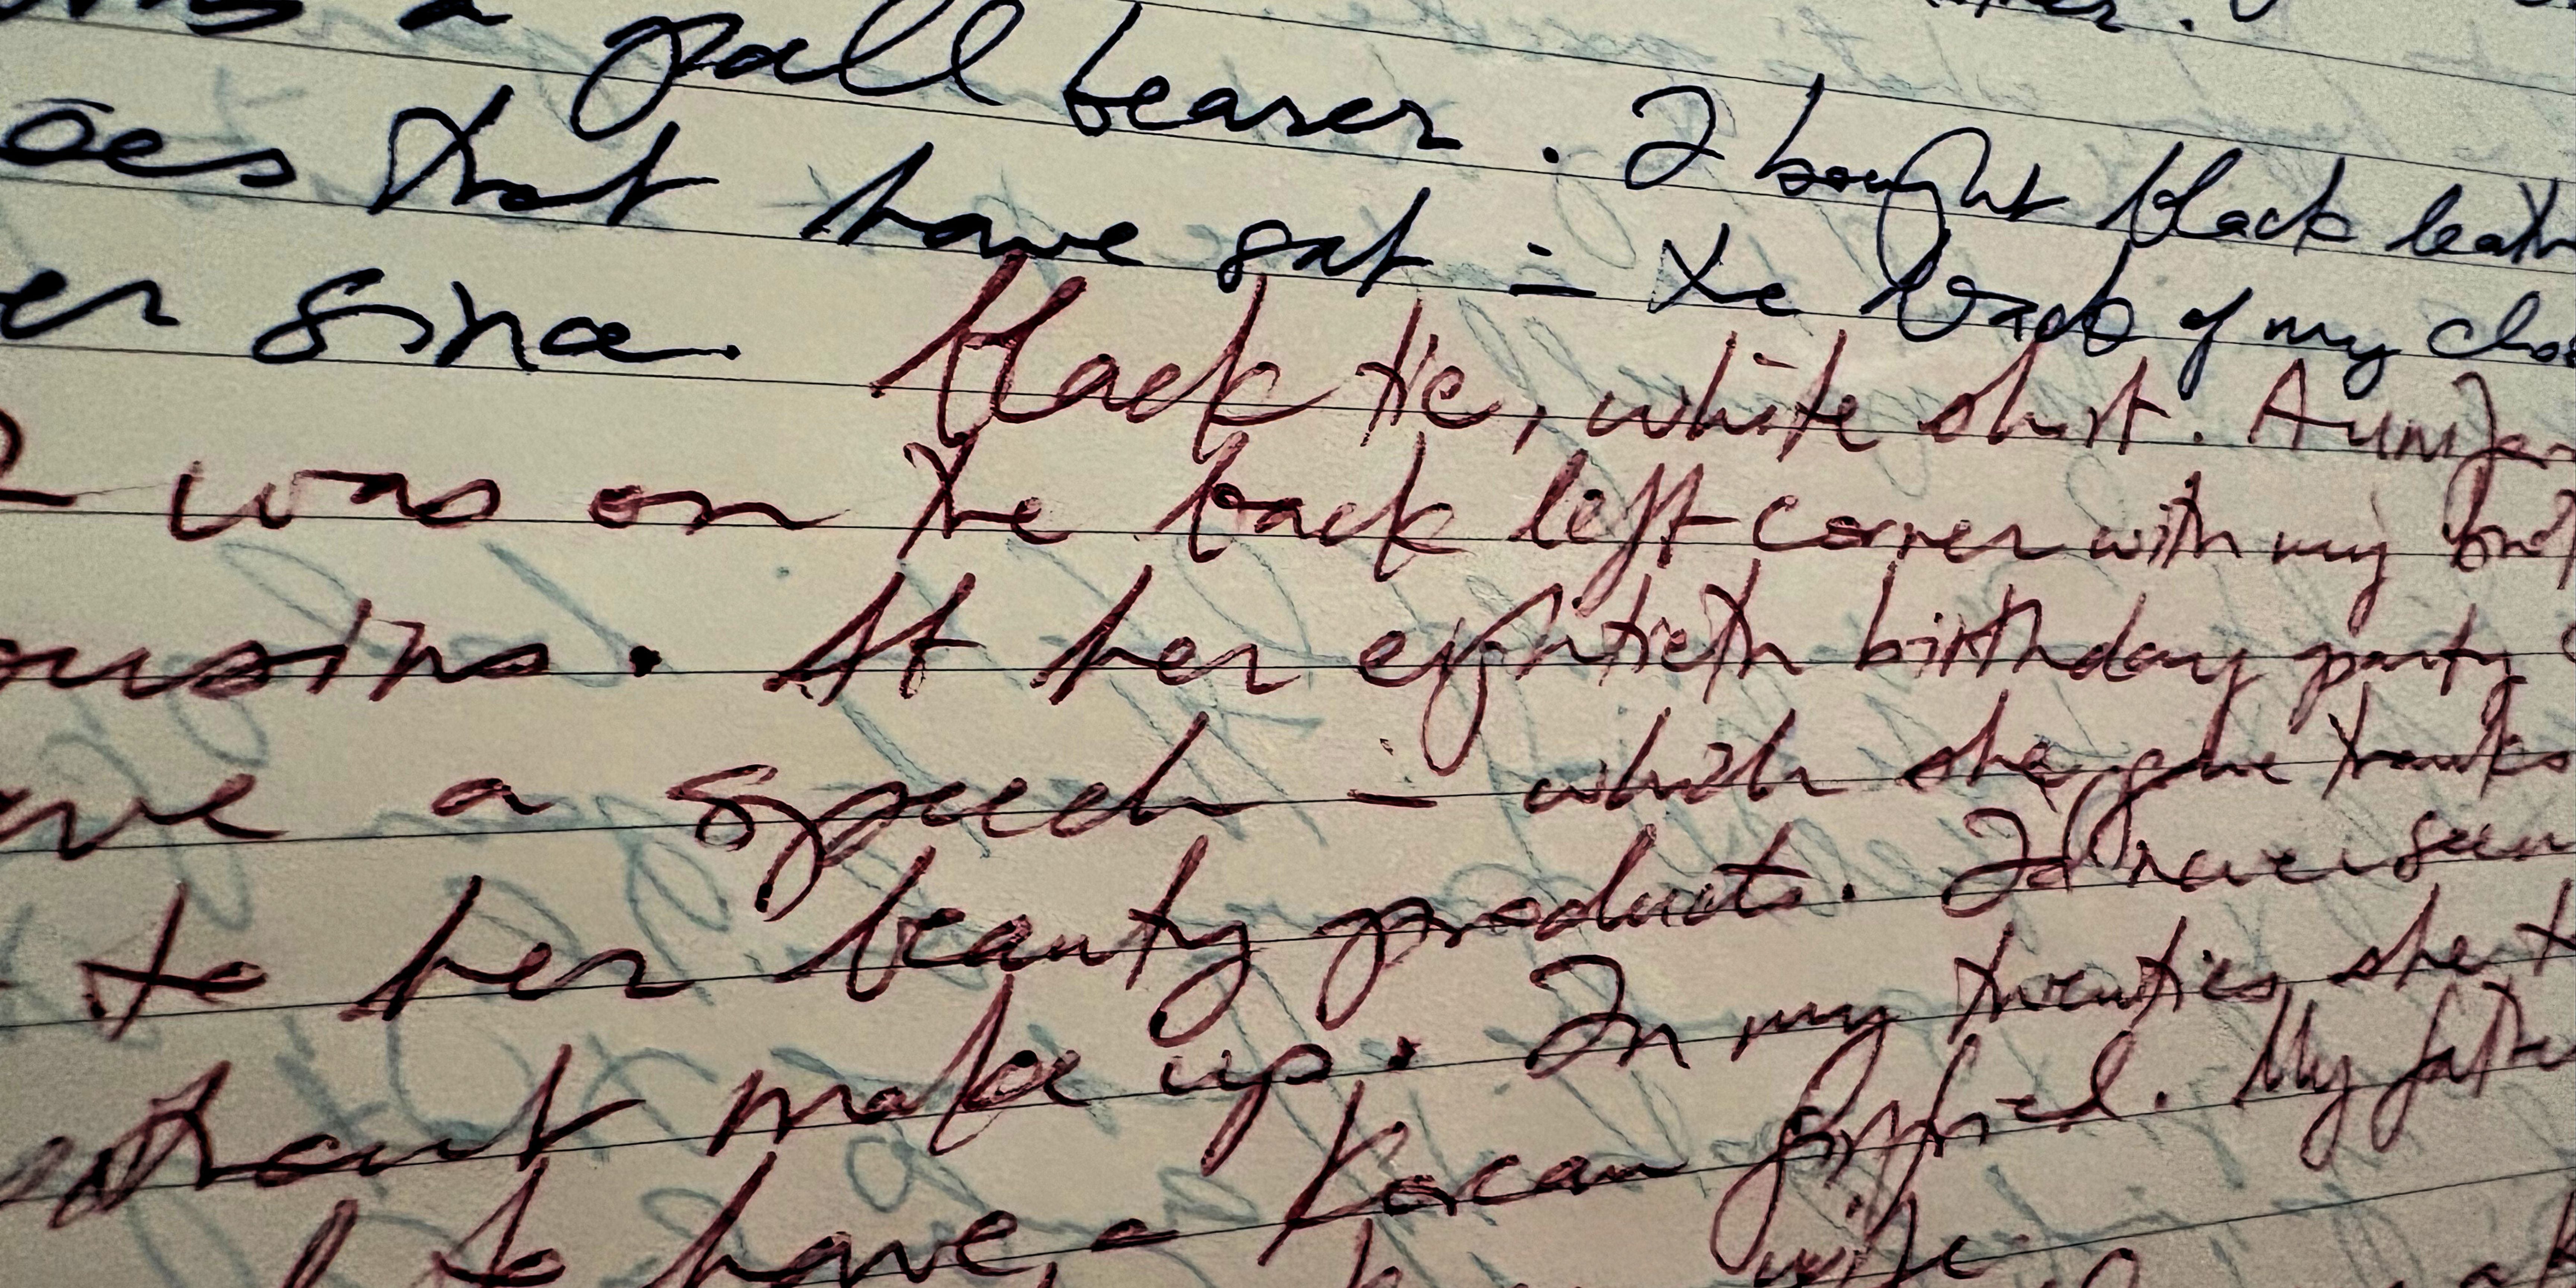 a pall bearer. I bought black leath
oes that have sat in the back of my clos
er since. Black tie, white shirt. A unifor
I was on the back left corner with my brot
ousins. At her eightieth birthday party
ave a speech in which she gave thanks
to her beauty products. I'd never seen
without make up. In my twenties she t
to have a Korean girlfriend. My fathe
wife